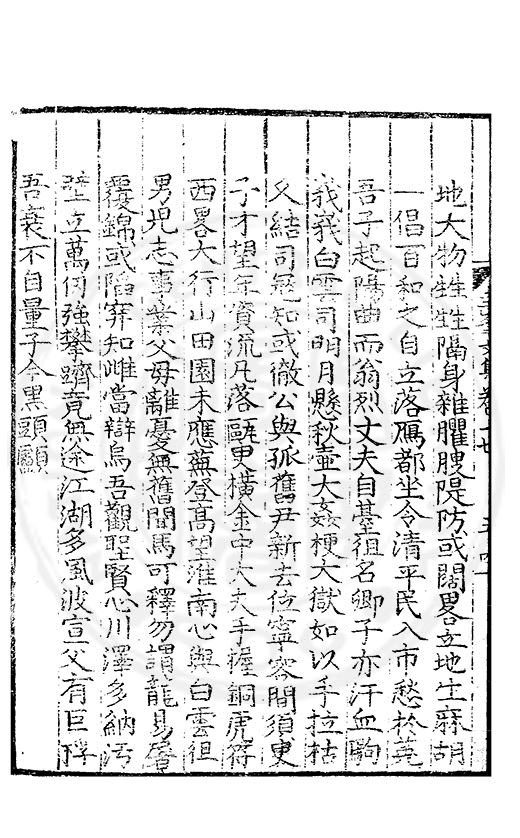 地大物甡甡隔身雜臞腴隄防或闊畧立地生寐胡
一倡百和之自立落鴈都坐令清平民入市愁於菟
吾子起陽曲而翁烈丈夫自臺徂名卿子亦汗血駒
義義白雲司明月懸秋壷大姦梗大獄如以手拉枯
父結司冦知或徹公與孤舊尹新去位寧容間須臾
子才望年資流凡落甌臾橫金中大夫手握銅虎符
西畧大行山田園未應蕪登高望淮南心與白雲徂
男児志事業父毋離憂無舊聞馬可釋勿謂龍易屠
覆錦或陷穽知雌當辯烏吾觀聖賢心川澤多納汚
壁立萬仞強攀躋竟無途江湖多風波宣父有巨桴
吾衰不自量子今黒頭顱